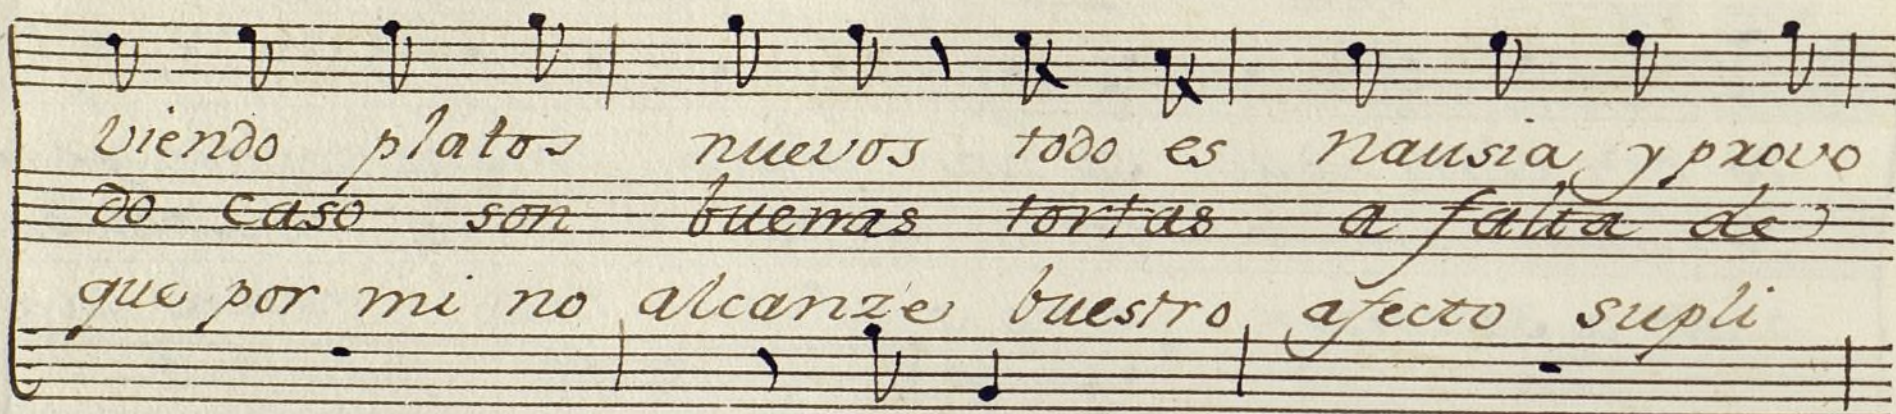 viendo platos nuevos todo es nausia y provo
do caso son buenas tortas a falta de
que por mi no alcanze buestro afecto supli